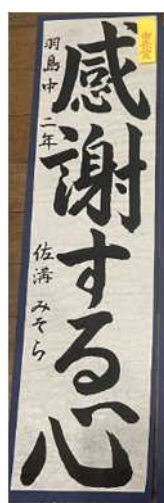 感謝する心
羽島中 二年
佐溝 みそら